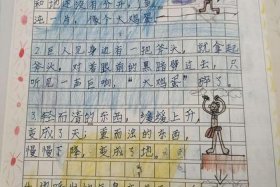 和地还没有分开，
沌一片，像个大鸡蛋
2巨人见身边有一把斧头，就拿起
斧头，对着眼前的黑暗劈过去，只
听见一声巨响，"大鸡蛋"碎了。
3轻而清的东西，缓缓上升，
变成了天，重而浊的东西，
慢慢下降，变成了地。